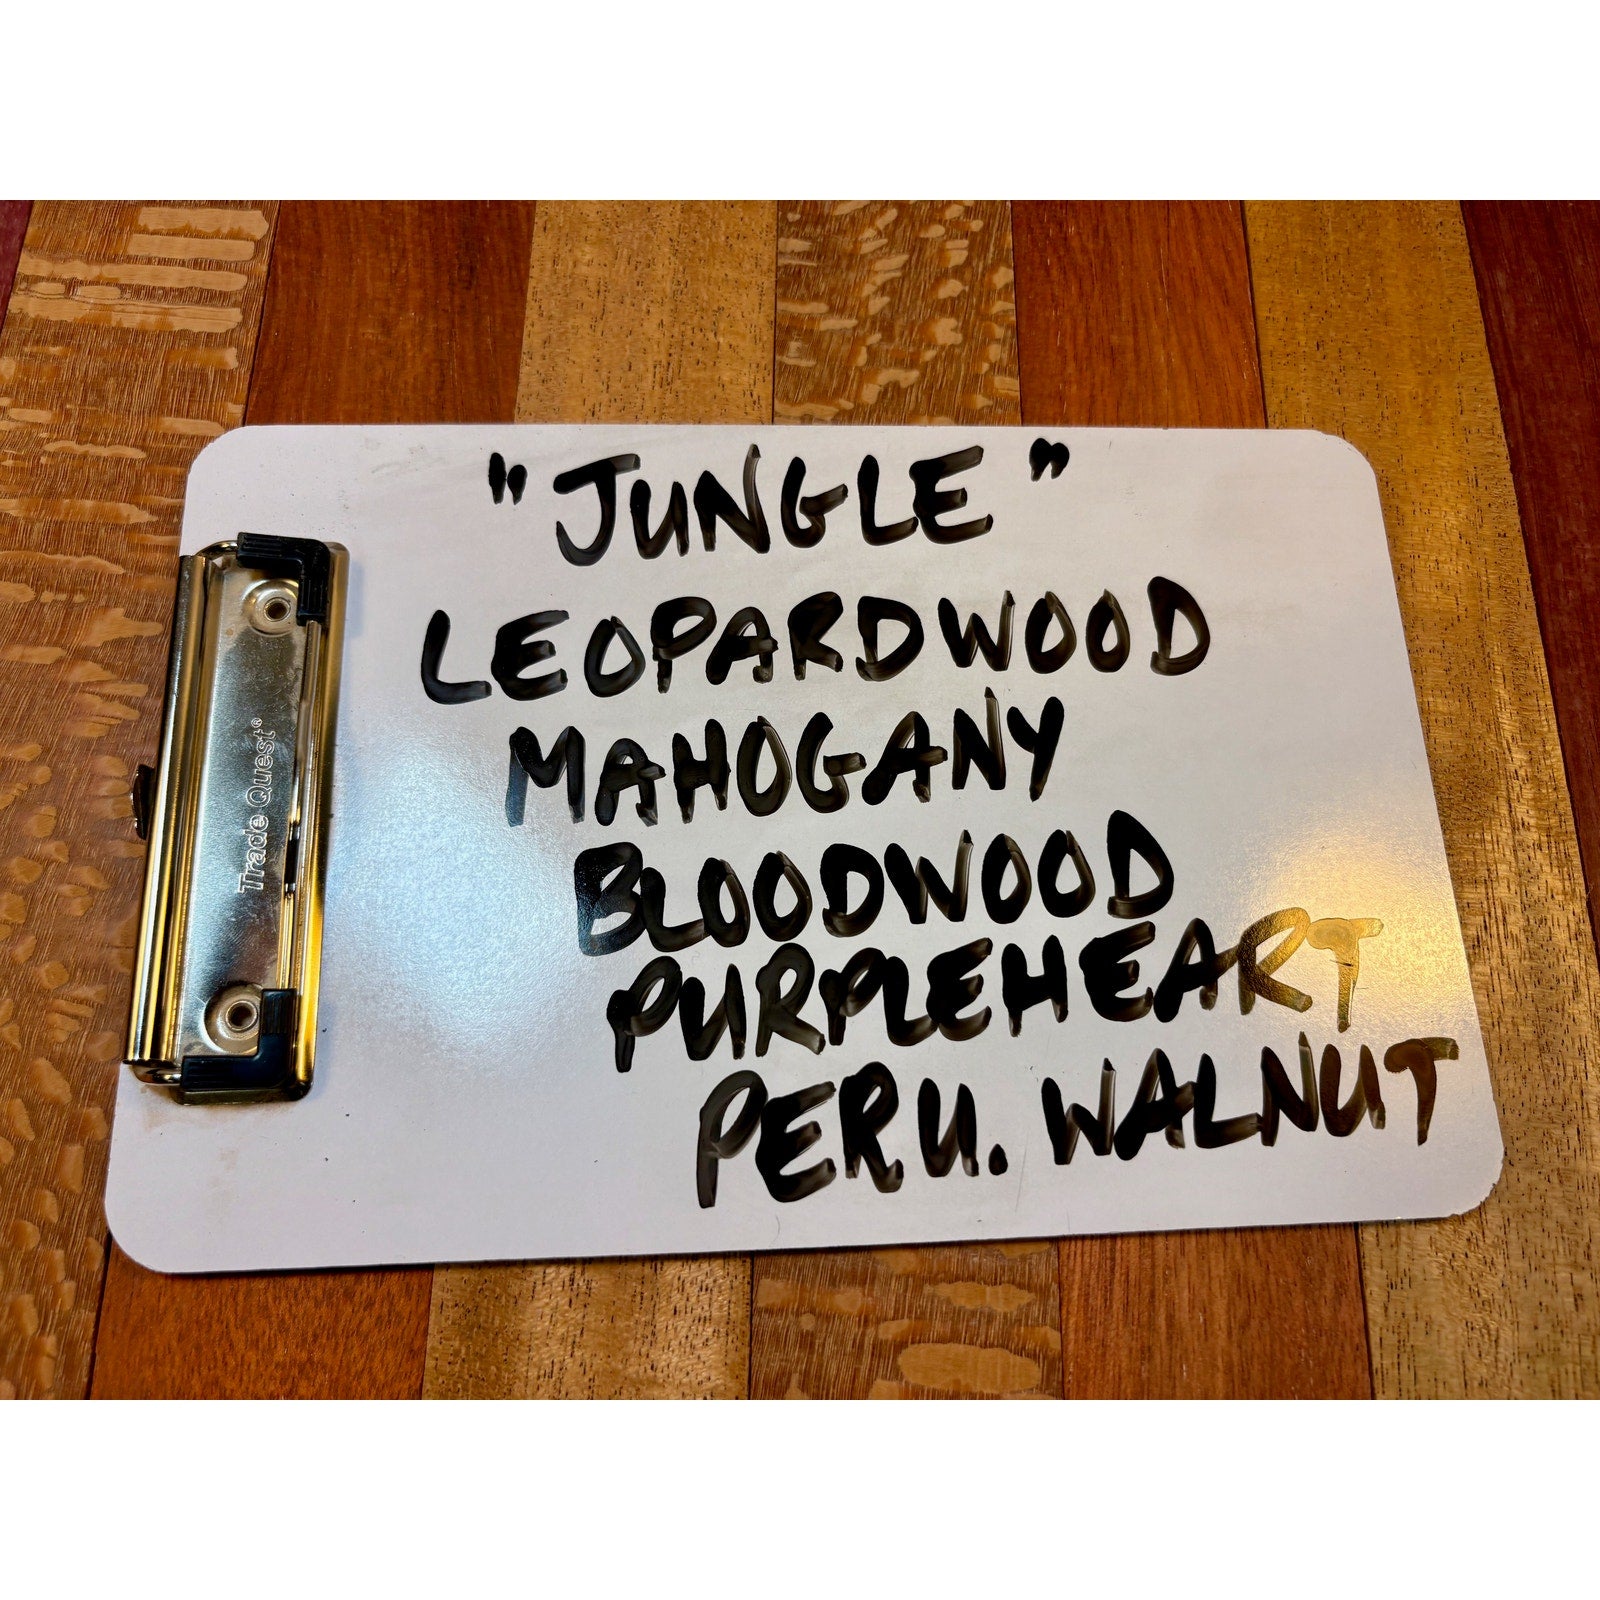 "JUNGLE"
LEOPARDWOOD
MAHOGANY
BLOODWOOD
PURPLEHEART
PERU. WALNUT
Trade Quest®